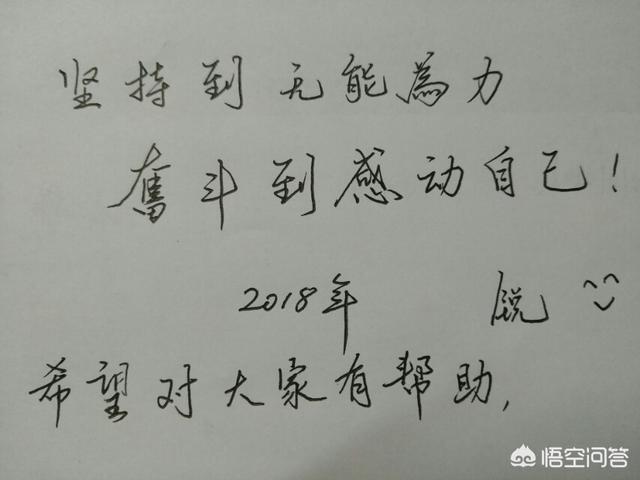 坚持到无能為力
奮斗到感动自己！
2018年 锐
希望对大家有帮助,
悟空问答